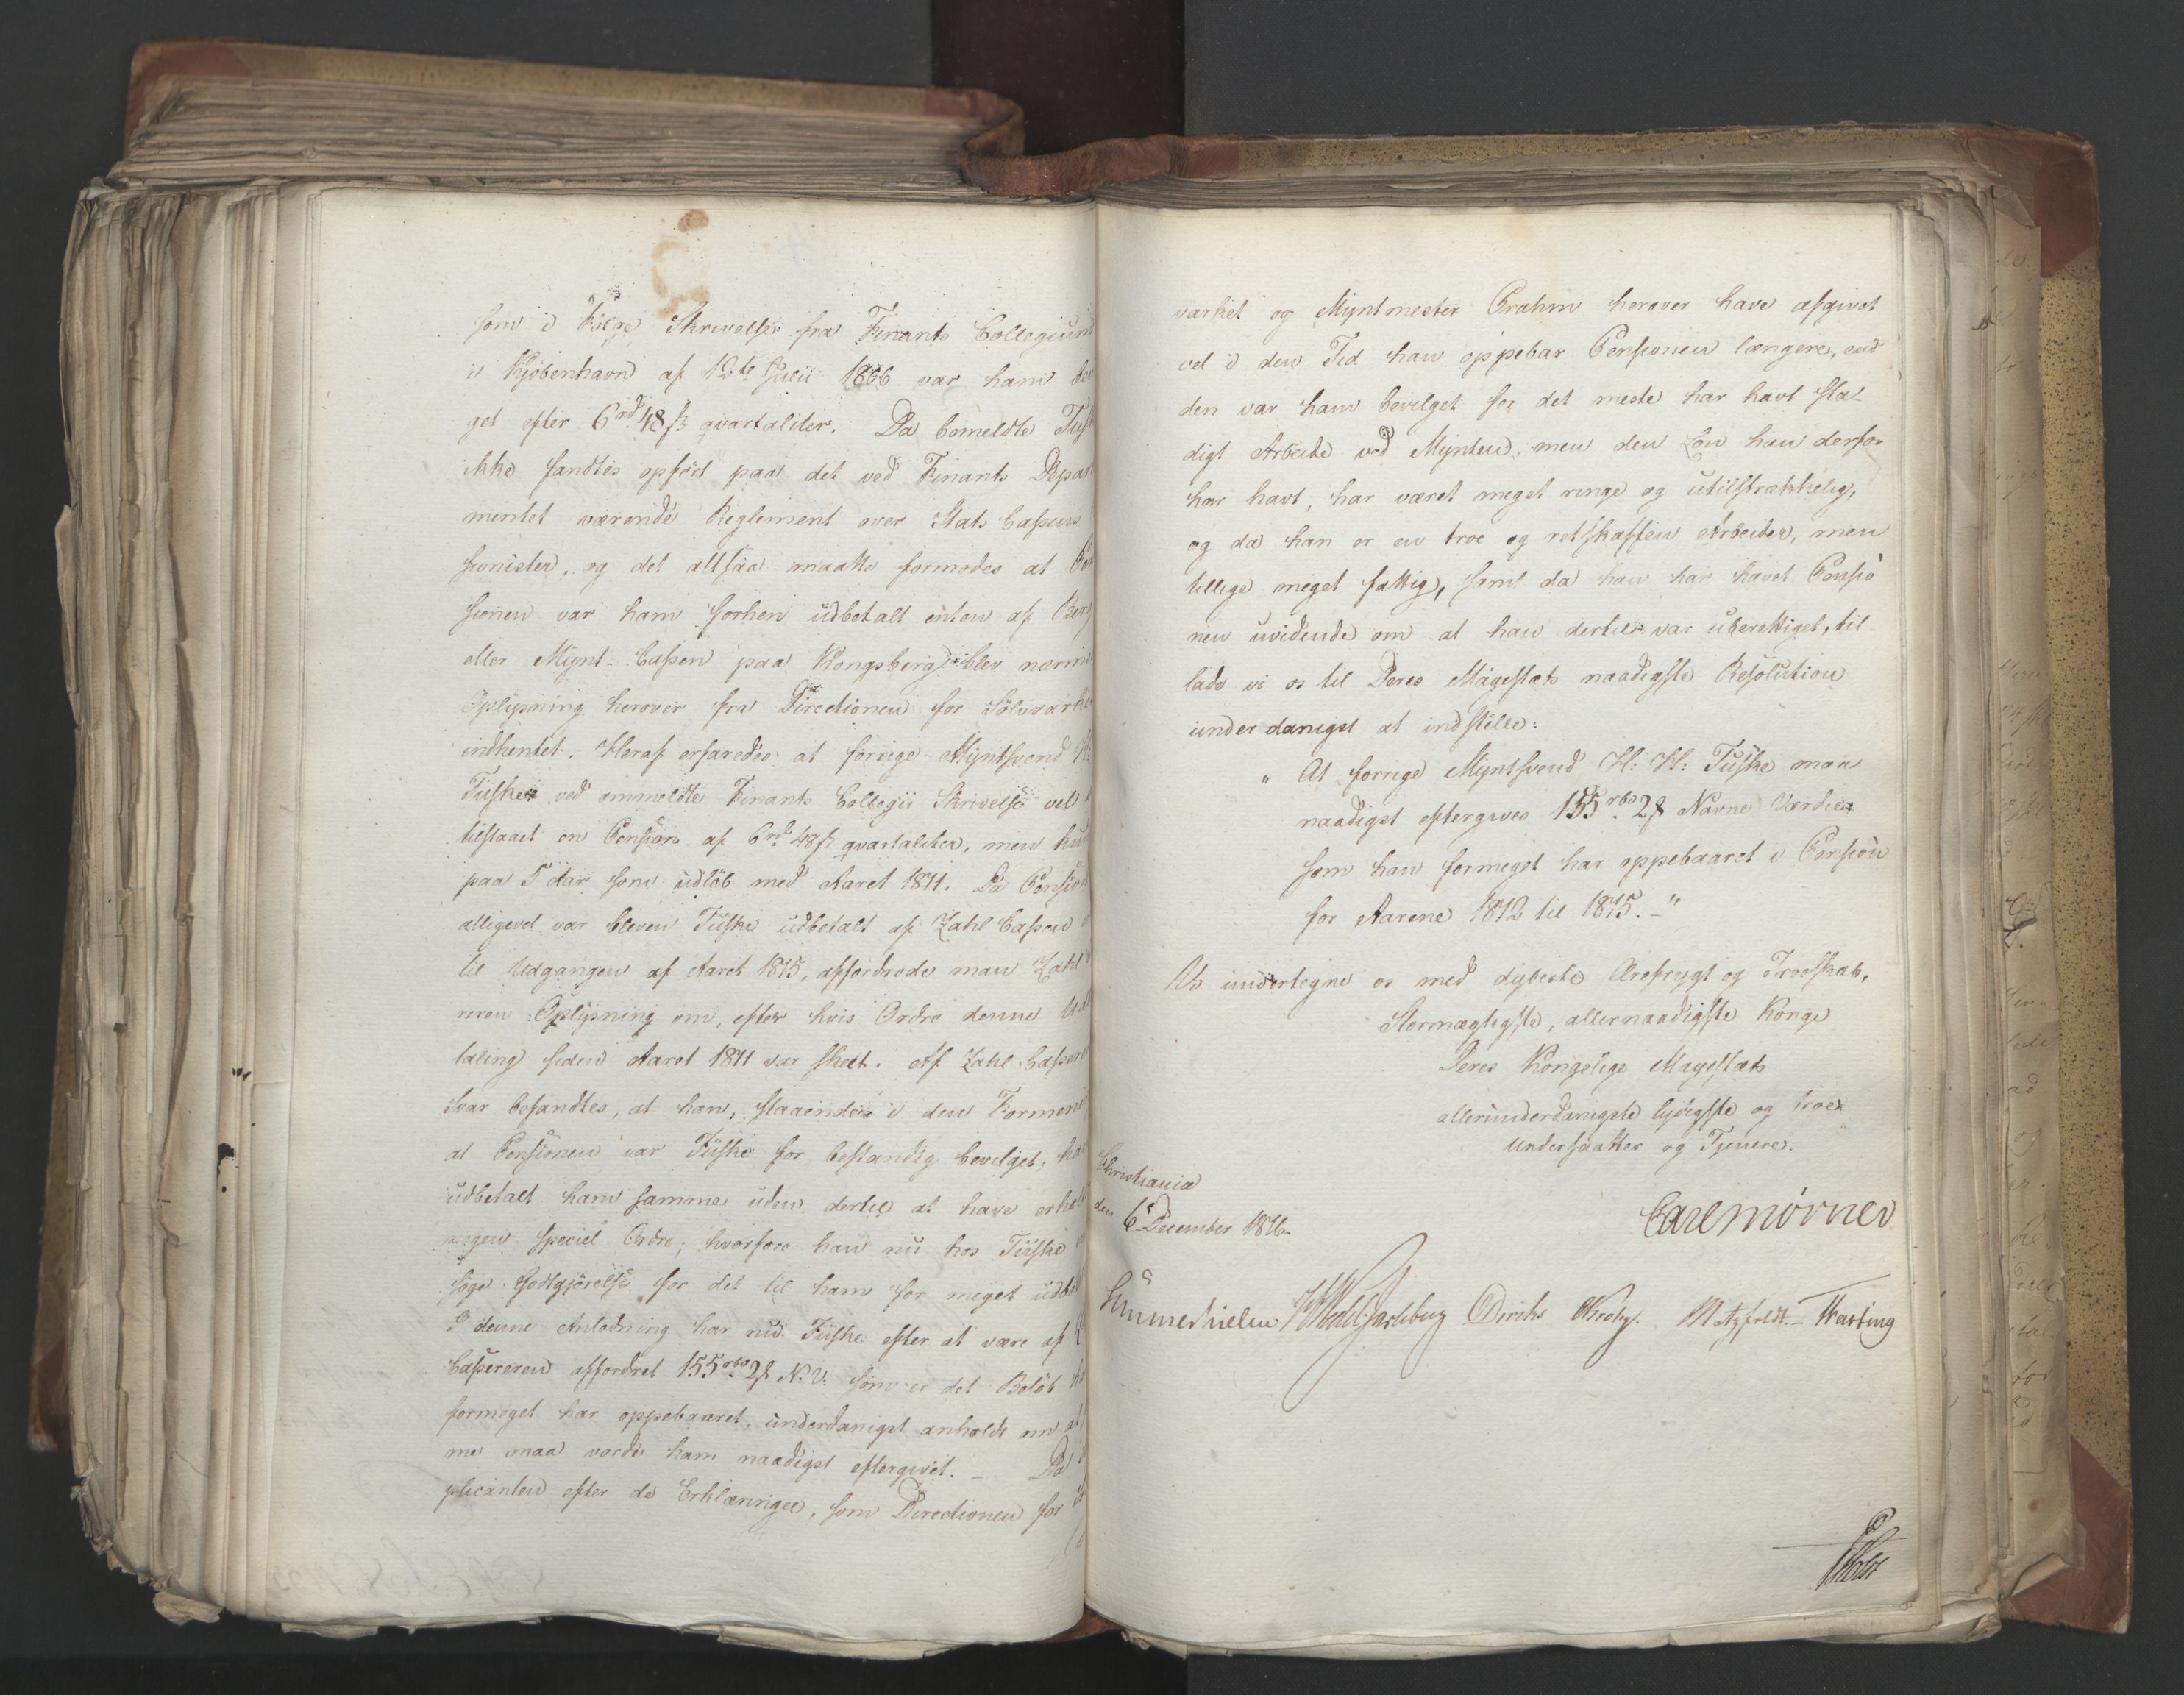 som i Følge Skrivelse fra Finants Collegium
i Kjöbenhavn af 12te Julii 1806 var ham
get efter 6rd 48 s qvartaliter. Da bemeldte Tuske
ikke fandtes opfört paa det ved Finants Depar
mentet værende Reglement over Stats Cassens
sionister, og det altsaa maatte formodes at Pen
sionen var ham forhen udbetalt enten af Berg
eller Mynt-Cassen paa Kongsberg, blev nærm
Oplysning herover fra Directionen for Sölvværket
indhentet. Heraf erfaredes at forrige Myntsvend H:
Tuske ved ommeldte Finants Collegii Skrivelse vel
tilstaaet en Pension af 6rd 48 s qvartaliter, men kun
paa 5 Aar som udlöb med Aaret 1811. Da Pension
alligevel var bleven Tuske udbetalt af Zahl Cassen
til Udgangen af Aaret 1815, affordrede man Zahl
reren Oplysning om, efter hvis Ordre denne Ud
taling siden Aaret 1811 var skeet. Af Zahl Casser
Svar befandtes, at han, staaende i den Formeni
at Pensionen var Tuske for bestandig bevilget, har
udbetalt ham samme uden dertil at have erhol
nogen speciel Ordre; hvorfore han nu hos Tuske
söge Godtgjörelse for det til ham for meget udbe
I denne Anledning har nu Tuske efter at være af
Cassereren affordret 155 rbd 2 s N. V. som er det Belöb
formeget har oppebaaret, underdanigst anholdt om at
me maa vorde ham naadigst eftergivet. – Da
plicanten efter de Erklæringer, som Directionen for
værket og Myntmester Prahm herover have afgivet
vel i den Tid han oppebar Pensionen længere, end
den var ham bevilget for det meste har havt sta-
digt Arbeide ved Mynten, men den Lön han derfor
har havt, har været meget ringe og utilstrækkelig,
og da han er en troe og retskaffen Arbeider, men
tillige meget fattig, samt da han har hævet Pensio
nen uvidende om at han dertil var uberettiget, til-
lade vi os til Deres Majestæts naadigste Resolution
underdanigst at indstille:
„At forrige Myntsvend H: H: Tuske maa
naadigst eftergives 155 rbd 2 s Navne Værdie
som han formeget har oppebaaret i Pension
for Aarene 1812 til 1815. –"
Vi undertegne os med dybeste Ærefrygt og Troeskab,
Stormægtigste, allernaadigste Konge
Deres Kongelige Majestæts
allerunderdanigste lydigste og troe
Undersaatter og Tjenere.
Christiania
den 6 December 1816.
Carl Mörner
Sommerhielm Wedel Jarlsberg Diriks Krohg. Motzfeldt. – Fasting
Holst